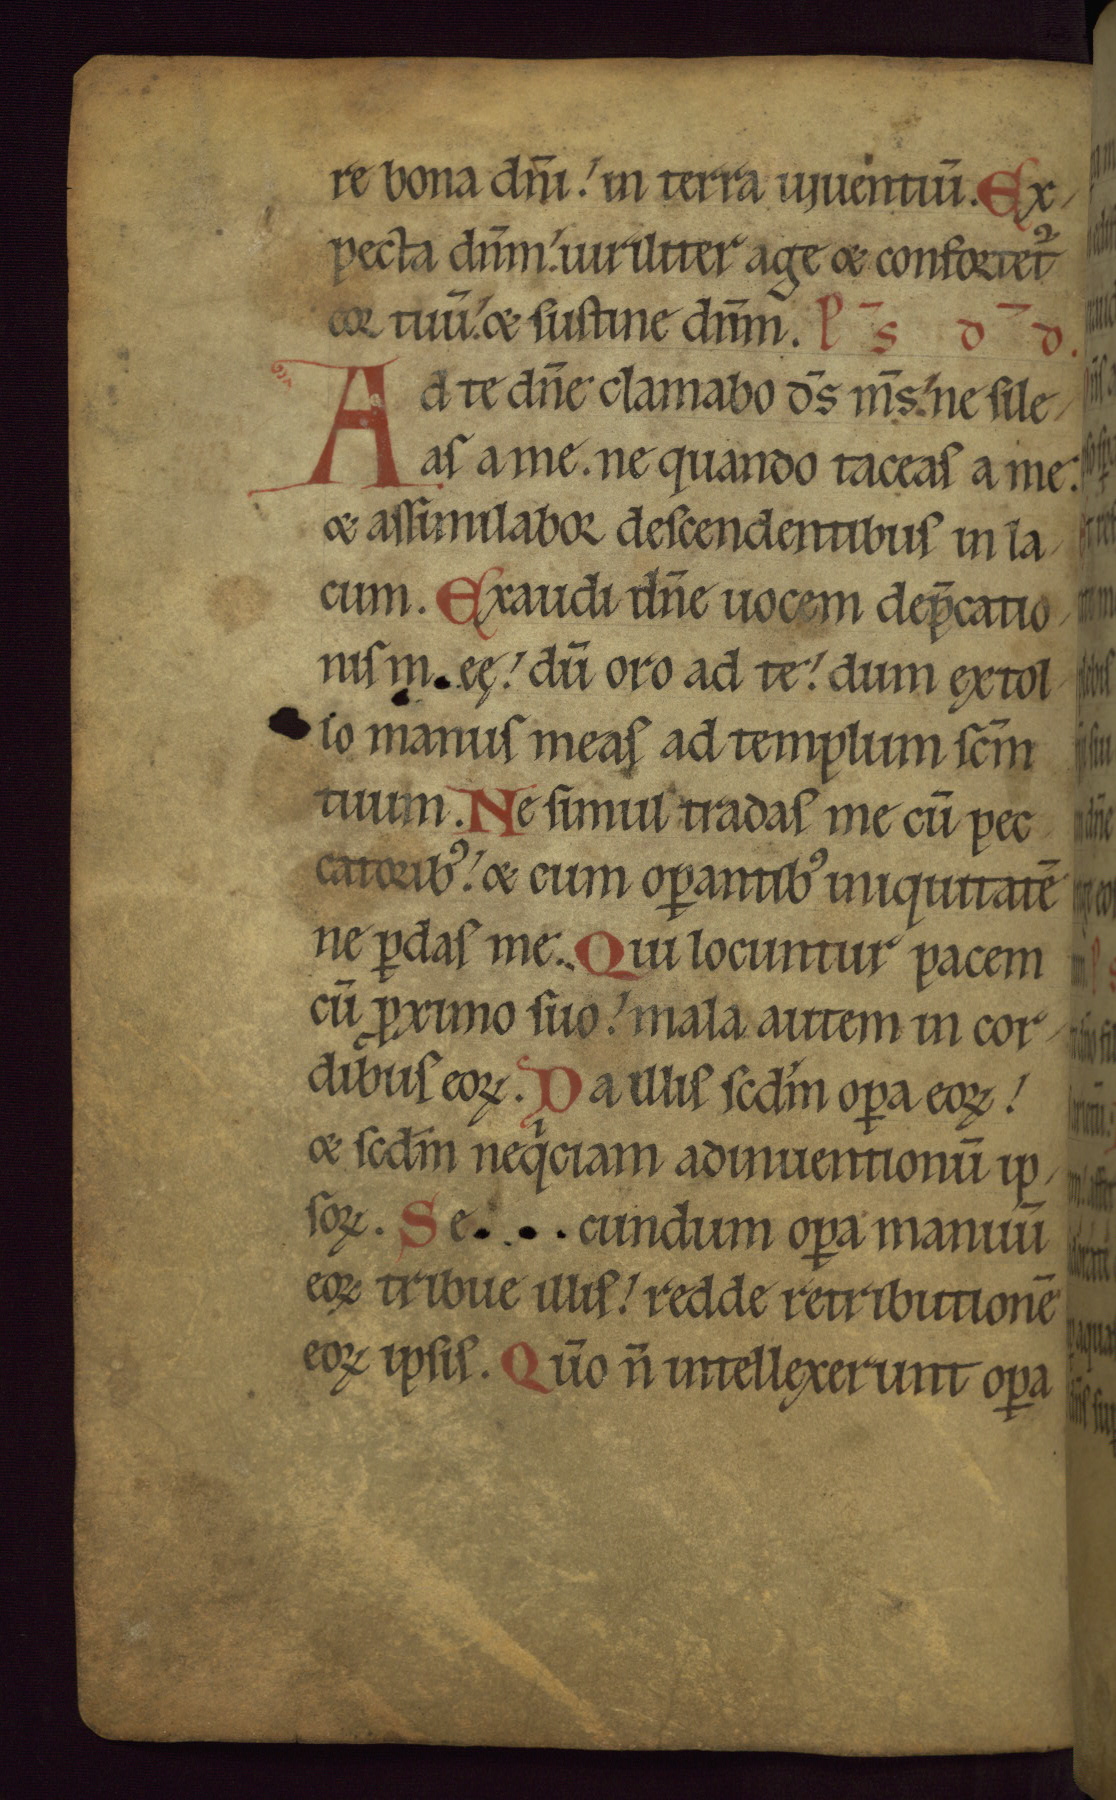 re bona dñi. in terra uiuentiū. Ex-
pecta dñm. uiriliter age & confortet᷒
cor tuū. & sustine dñm. Ps̄ d̄ d.
Ad te dñe clamabo ds̄ ms̄. ne sile-
as a me. ne quando taceas a me.
& assimilabor descendentibus in la-
cum. Exaudi dñe uocem dep̄catio-
nis m eę. dū oro ad te. dum extol-
lo manus meas ad templum scm̄
tuum. Ne simul tradas me cū pec
catorib᷒. & cum oꝑantib᷒ iniquitatē
ne ꝑdas me. Qui locuntur pacem
cū ꝓximo suo. mala autem in cor-
dibus eoꝝ. Da illis scdm̄ oꝑa eoꝝ.
& scdm̄ neqͥciam adinuentionū ip-
soꝝ. Se cundum oꝑa manuū
eoꝝ tribue illis. redde retributionē
eoꝝ ipsis. Qūo n̄ intellexerunt oꝑa